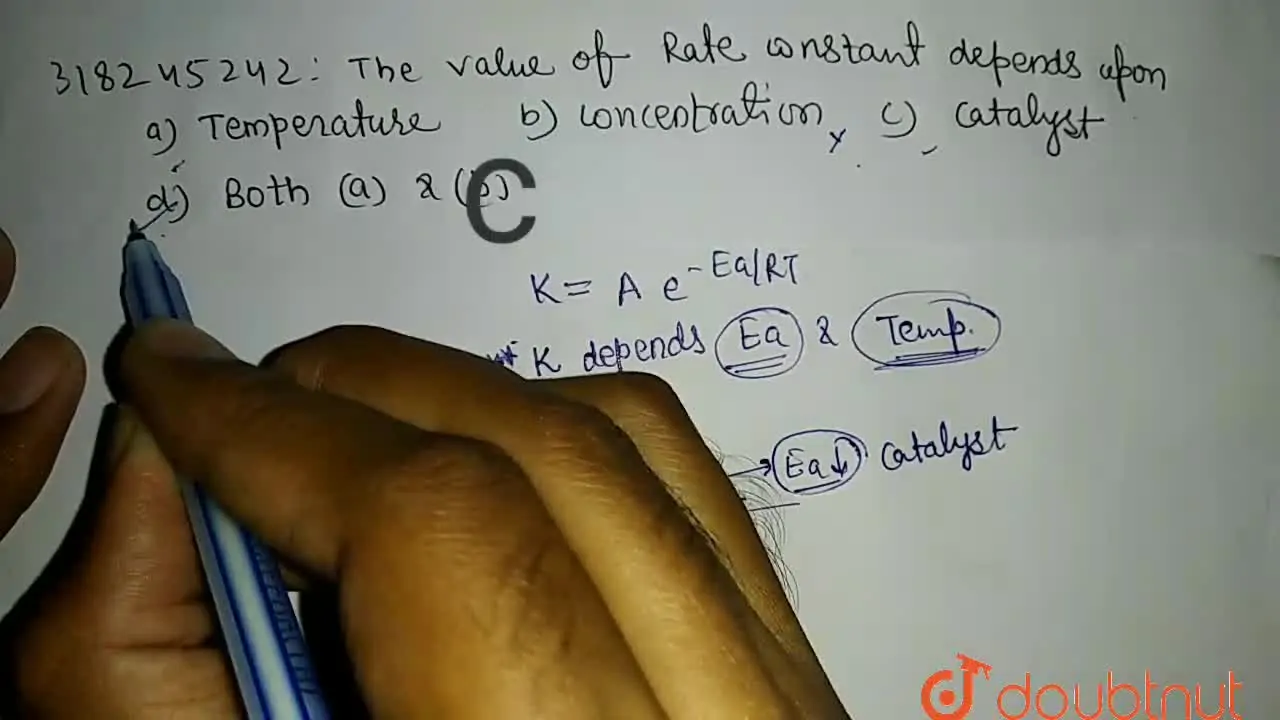 318245242: The value of Rate constant depends upon
a) Temperature b) concentration x c) catalyst
d) Both (a) & (b) C
K = A e^-Ea/RT
* K depends Ea & Temp.
→ Ea↓ catalyst
doubtnut